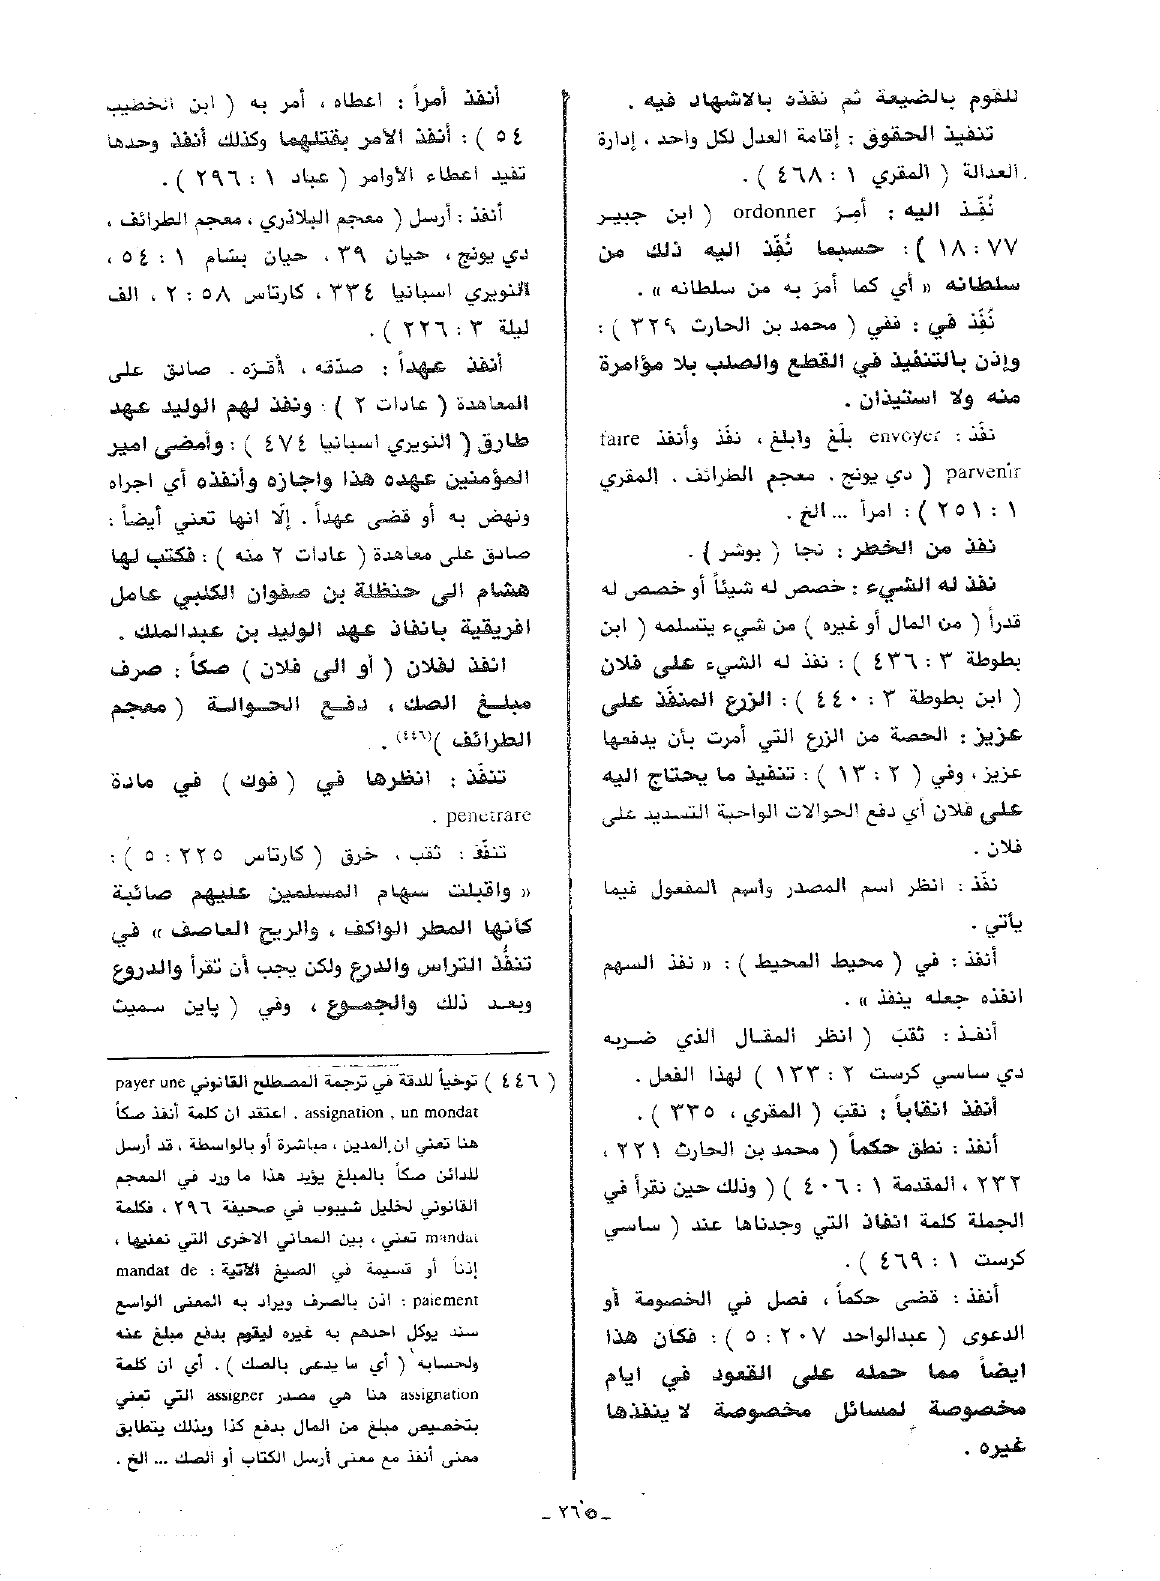 للقوم بالضيعة ثم نفذه بالاشهاد فيه .
تنفيذ الحقوق : إقامة العدل لكل واحد ، إدارة
العدالة ( المقري ١ : ٤٦٨ ) .
نُفِّذ اليه : أمِرَ ordonner ( ابن جبير
٧٧ : ١٨ ) : حسبما نُفِّذ اليه ذلك من
سلطانه « أي كما أمرَ به من سلطانه » .
نُفِّذ في : ففي ( محمد بن الحارث ٣٢٩ ) :
وإذن بالتنفيذ في القطع والصلب بلا مؤامرة
منه ولا استيذان .
نفّذ : envoyer بلّغ وابلغ ، نفّذ وأنفذ faire
parvenir ( دي يونج ، معجم الطرائف ، المقري
١ : ٢٥١ ) : امراً ... الخ .
نفذ من الخطر : نجا ( بوشر ) .
نفذ له الشيء : خصص له شيئاً أو خصص له
قدراً ( من المال أو غيره ) من شيء يتسلمه ( ابن
بطوطة ٣ : ٤٣٦ ) : نفذ له الشيء على فلان
( ابن بطوطة ٣ : ٤٤٠ ) : الزرع المنفّذ على
عزيز : الحصة من الزرع التي أمرت بأن يدفعها
عزيز ، وفي ( ٢ : ١٣ ) : تنفيذ ما يحتاج اليه
على فلان أي دفع الحوالات الواجبة التسديد على
فلان .
نفّذ : انظر اسم المصدر واسم المفعول فيما
يأتي .
أنفذ : في ( محيط المحيط ) : « نفذ السهم
انفذه جعله ينفذ » .
أنفـذ : ثقبَ ( انظر المقال الذي ضربه
دي ساسي كرست ٢ : ١٣٣ ) لهذا الفعل .
أنفذ انقاباً : نقب ( المقري ، ٣٣٥ ) .
أنفذ : نطق حكماً ( محمد بن الحارث ٢٢١ ،
٢٣٢ ، المقدمة ١ : ٤٠٦ ) ( وذلك حين نقرأ في
الجملة كلمة انفاذ التي وجدناها عند ( ساسي
كرست ١ : ٤٦٩ ) .
أنفذ : قضى حكماً ، فصل في الخصومة أو
الدعوى ( عبدالواحد ٢٠٧ : ٥ ) : فكان هذا
ايضاً مما حمله على القعود في ايام
مخصوصة لمسائل مخصوصة لا ينفذها
غيره .
أنفذ أمراً : اعطاه ، أمر به ( ابن الخطيب
٥٤ ) : أنفذ الأمر بقتلهما وكذلك أنفذ وحدها
تفيد اعطاء الأوامر ( عباد ١ : ٢٩٦ ) .
أنفذ : أرسل ( معجم البلاذري ، معجم الطرائف ،
دي يونج ، حيان ٣٩ ، حيان بسّام ١ : ٥٤ ،
النويري اسبانيا ٣٣٤ ، كارتاس ٥٨ : ٢ ، الف
ليلة ٣ : ٢٢٦ ) .
أنفذ عهداً : صدّقه ، أقـرّه . صادق على
المعاهدة ( عادات ٢ ) : ونفذ لهم الوليد عهد
طارق ( النويري اسبانيا ٤٧٤ ) : وأمضى امير
المؤمنين عهده هذا واجازه وأنفذه أي اجراه
ونهض به أو قضى عهداً . إلّا انها تعني أيضاً :
صادق على معاهدة ( عادات ٢ منه ) : فكتب لها
هشام الى حنظلة بن صفوان الكلبي عامل
افريقية بانفاذ عهد الوليد بن عبدالملك .
انفذ لفلان ( أو الى فلان ) صكاً : صرف
مبلـغ الصك ، دفـع الحـوالـة ( معجم
الطرائف )(٤٤٦) .
تنفّذ : انظرها في ( فوك ) في مادة
penetrare .
تنفّذ : ثقب ، خرق ( كارتاس ٢٢٥ : ٥ ) :
« واقبلت سهام المسلمين عليهم صائبة
كأنها المطر الواكف ، والريح العاصف » في
تنفُّذ التراس والدرع ولكن يجب أن تقرأ والدروع
وبعد ذلك والجموع ، وفي ( پاين سميث
( ٤٤٦ ) توخياً للدقة في ترجمة المصطلح القانوني payer une
assignation , un mondat . اعتقد ان كلمة أنفذ صكاً
هنا تعني ان المدين ، مباشرة أو بالواسطة ، قد أرسل
للدائن صكاً بالمبلغ يؤيد هذا ما ورد في المعجم
القانوني لخليل شيبوب في صحيفة ٢٩٦ ، فكلمة
mandat تعني ، بين المعاني الاخرى التي نعنيها ،
إذناً أو قسيمة في الصيغ الآتية : mandat de
paiement : اذن بالصرف ويراد به المعنى الواسع
سند يوكل احدهم به غيره ليقوم بدفع مبلغ عنه
ولحسابه ( أي ما يدعى بالصك ) . أي ان كلمة
assignation هنا هي مصدر assigner التي تعني
بتخصيص مبلغ من المال بدفع كذا وبذلك يتطابق
معنى أنفذ مع معنى أرسل الكتاب أو الصك ... الخ .
ـ ٢٦٥ ـ